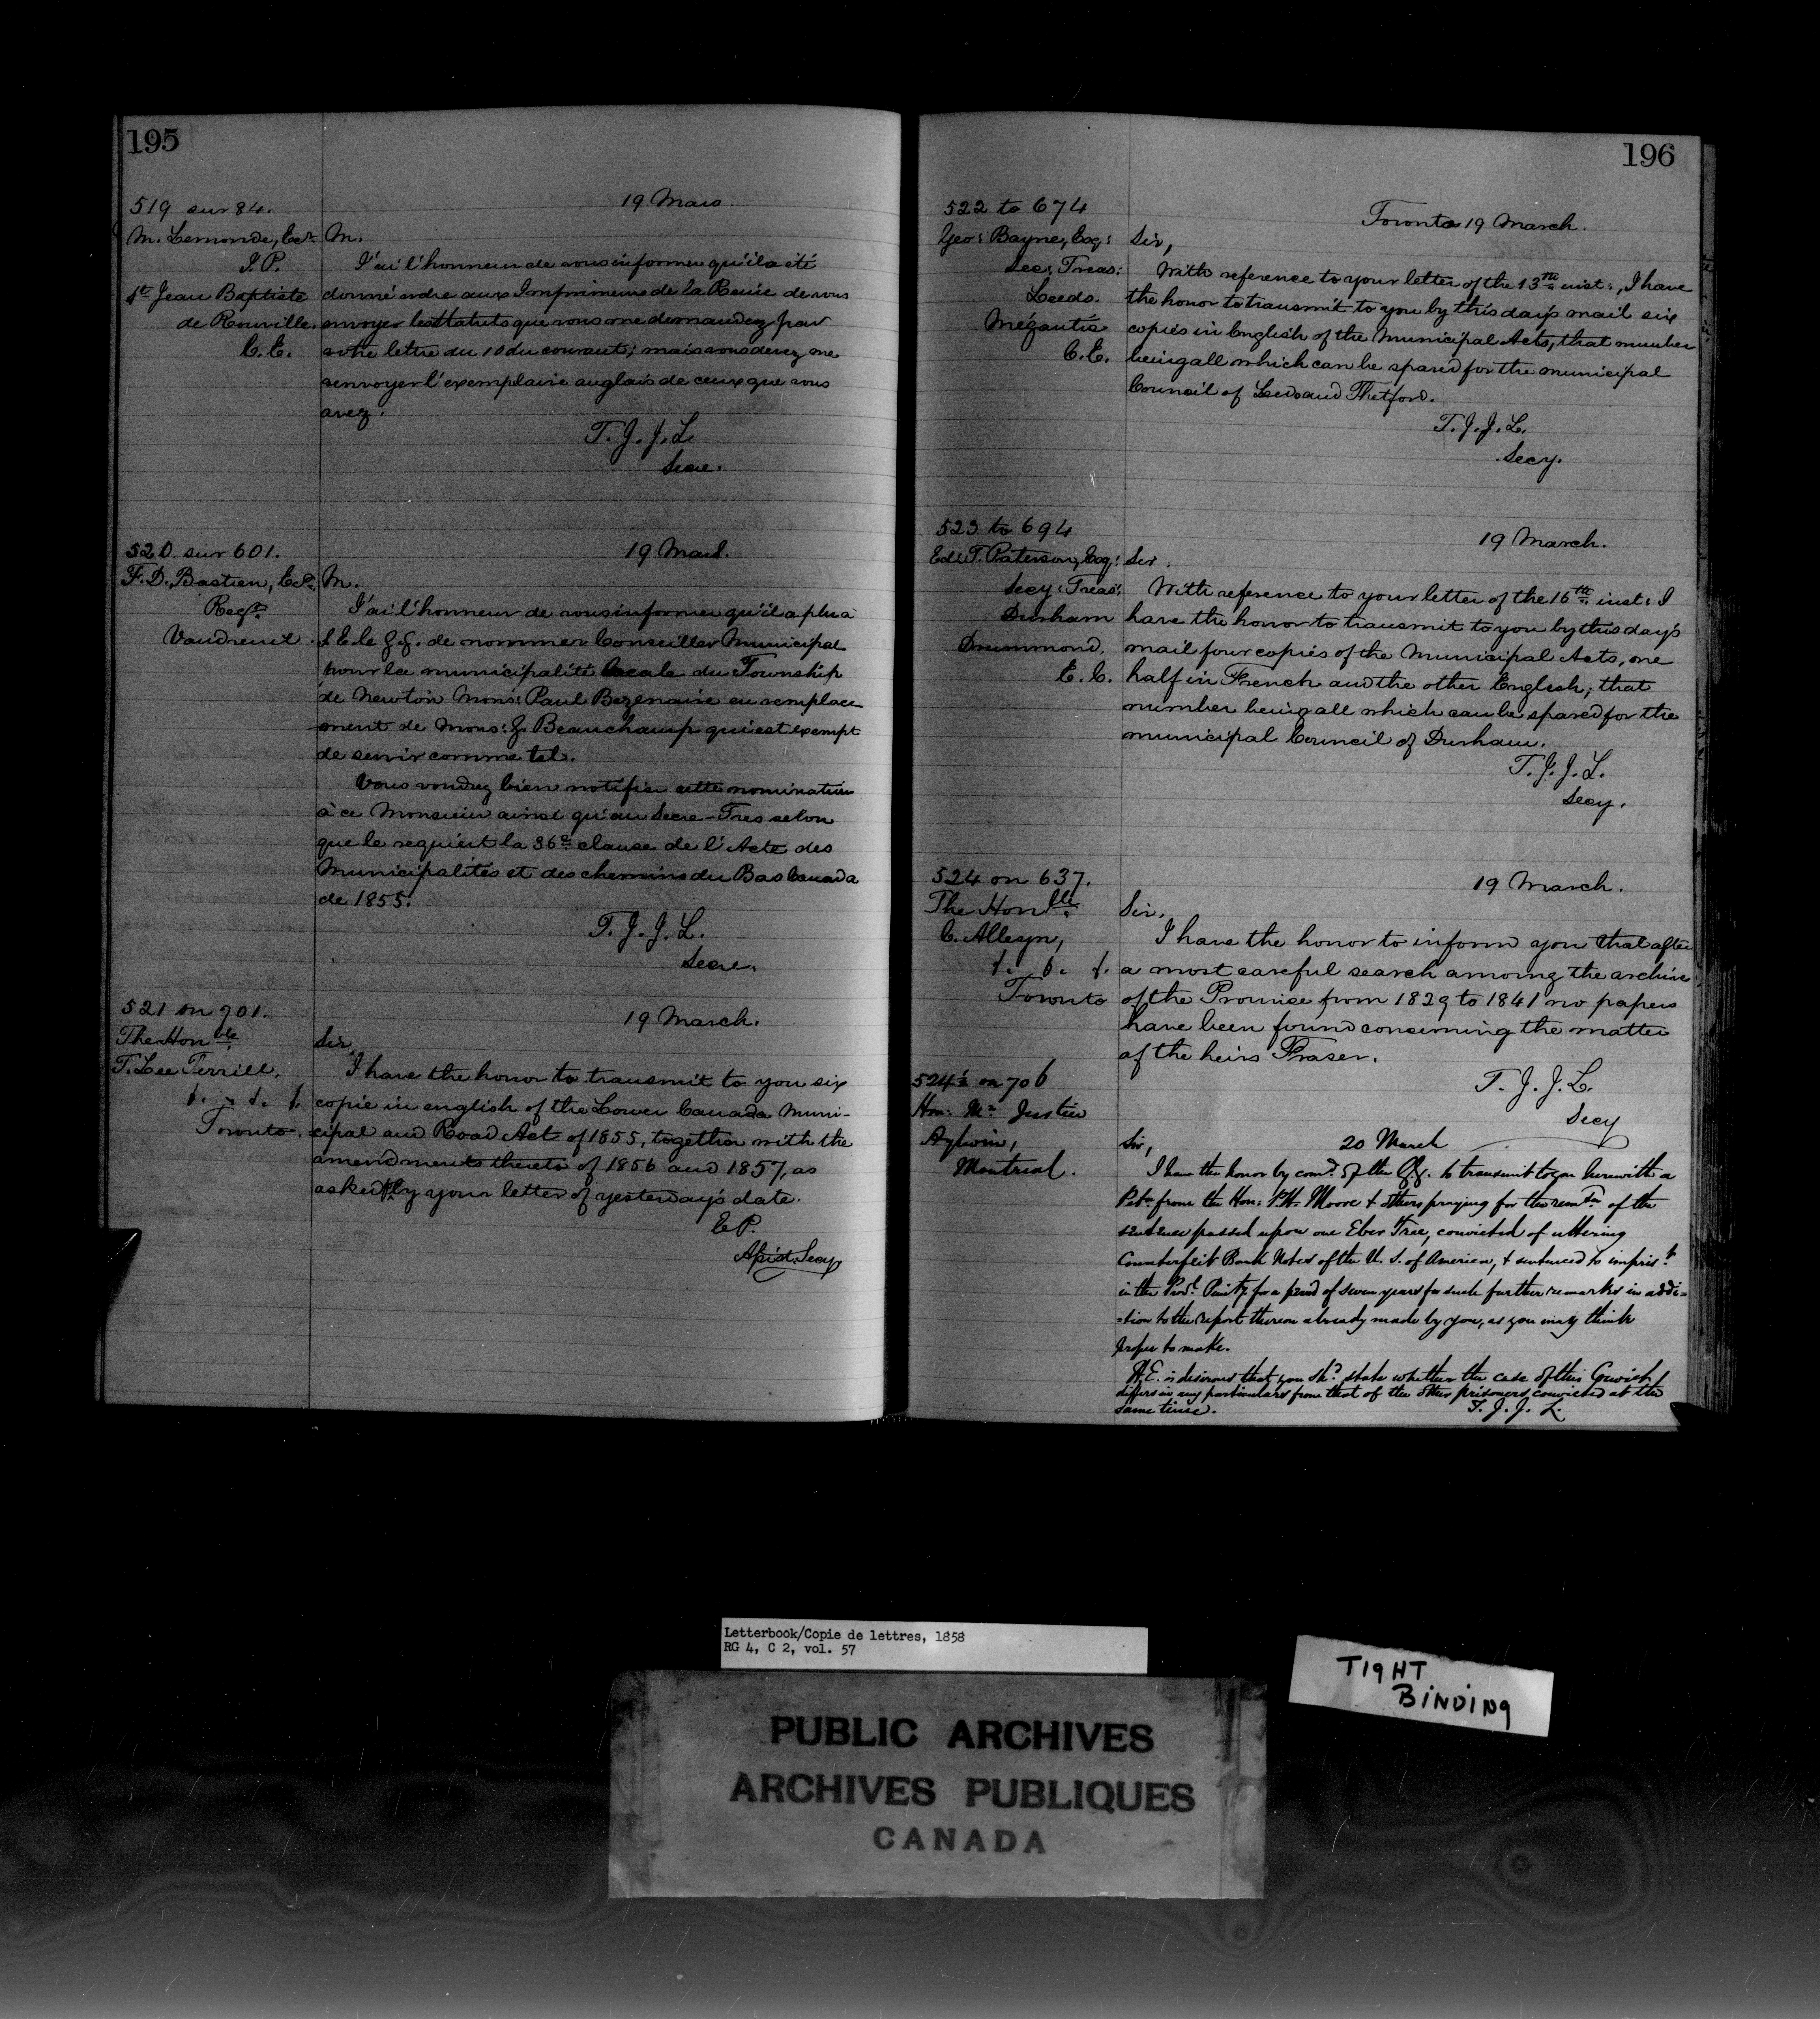 195
519 sur 84.
19 Mars.
M. Lemonde, Ecr.
M.
J.P.
J'ai l'honneur de vous informer qu'il a été
St Jean Baptiste
donné ordre aux Imprimeurs de la Reine de vous
de Rouville.
envoyer les Statuts que vous me demandez par
C.E.
votre lettre du 10 du courant; mais vous devez me
renvoyer l'exemplaire anglais de ceux que vous
avez.
T. J. J. L.
Secre.
520 sur 601.
19 Mars.
F. D. Bastien, Ecr.
M.
Regr.
J'ai l'honneur de vous informer qu'il a plu à
Vaudreuil.
S. E. le G. G. de nommer Conseiller Municipal
pour la municipalité locale du Township
de Newton Monsr. Paul Bezenaire en remplace
ment de Mons: J. Beauchamp qui est exempt
de servir comme tel.
Vous voudrez bien notifier cette nomination
à ce Monsieur ainsi qu'au Secre-Tres selon
que le requiert la 36e clause de l'Acte des
Municipalités et des chemins du Bas Canada
de 1855.
T. J. J. L.
Secre.
521 on 701.
19 March.
The Honble
Sir,
T. Lee Terrill,
I have the honor to transmit to you six
copie in english of the Lower Canada Muni-
Toronto.
cipal and Road Act of 1855, together with the
amendments thereto of 1856 and 1857, as
asked by your letter of yesterday's date.
E P.
Asist. Secy
196
522 to 674
Toronto 19 March.
Geo: Bayne, Esq:
Sir,
Sec: Treas:
With reference to your letter of the 13th inst:, I have
Leeds.
the honor to transmit to you by this day's mail six
Mégantic
copies in English of the Municipal Acts, that number
C.E.
being all which can be spared for the municipal
Council of Leeds and Thetford.
T. J. J. L.
Secy.
523 to 694
19 March.
Ed: T. Paterson, Esq:
Sir.
Secy: Treas:
With reference to your letter of the 16th inst: I
Durham
have the honor to transmit to you by this day's
Drummond,
mail four copies of the Municipal Acts, one
E. C.
half in French and the other English; that
number being all which can be spared for the
municipal Council of Durham.
T. J. J. L.
Secy.
524 on 637.
19 March.
The Honble
Sir,
C. Alleyn,
I have the honor to inform you that after
a most careful search among the archives
Toronto
of the Province from 1829 to 1841 no papers
have been found concerning the matter
of the heirs Fraser.
T. J. J. L.
Secy
524½ on 706
Hon: Mr Justice
Aylwin,
Sir,
20 March
Montreal.
I have the honor by comd. of the G. G. to transmit to you herewith a
Petn. from the Hon: P. H. Moore & others praying for the remon of the
sentence passed upon one Eber Tree, convicted of uttering
Counterfeit Bank Notes of the U. S. of America, & sentenced to imprist.
in the Provl. Penity for a period of seven years for such further remarks in addi=
=tion to the report thereon already made by you, as you may think
proper to make.
H.E. is desirous that you shd. state whether the case of this Convict
differs in any particulars from that of the other prisoners convicted at the
same time.
T. J. J. L.
Letterbook/Copie de lettres, 1858
RG 4, C 2, vol. 57
TIGHT
BINDING
PUBLIC ARCHIVES
ARCHIVES PUBLIQUES
CANADA